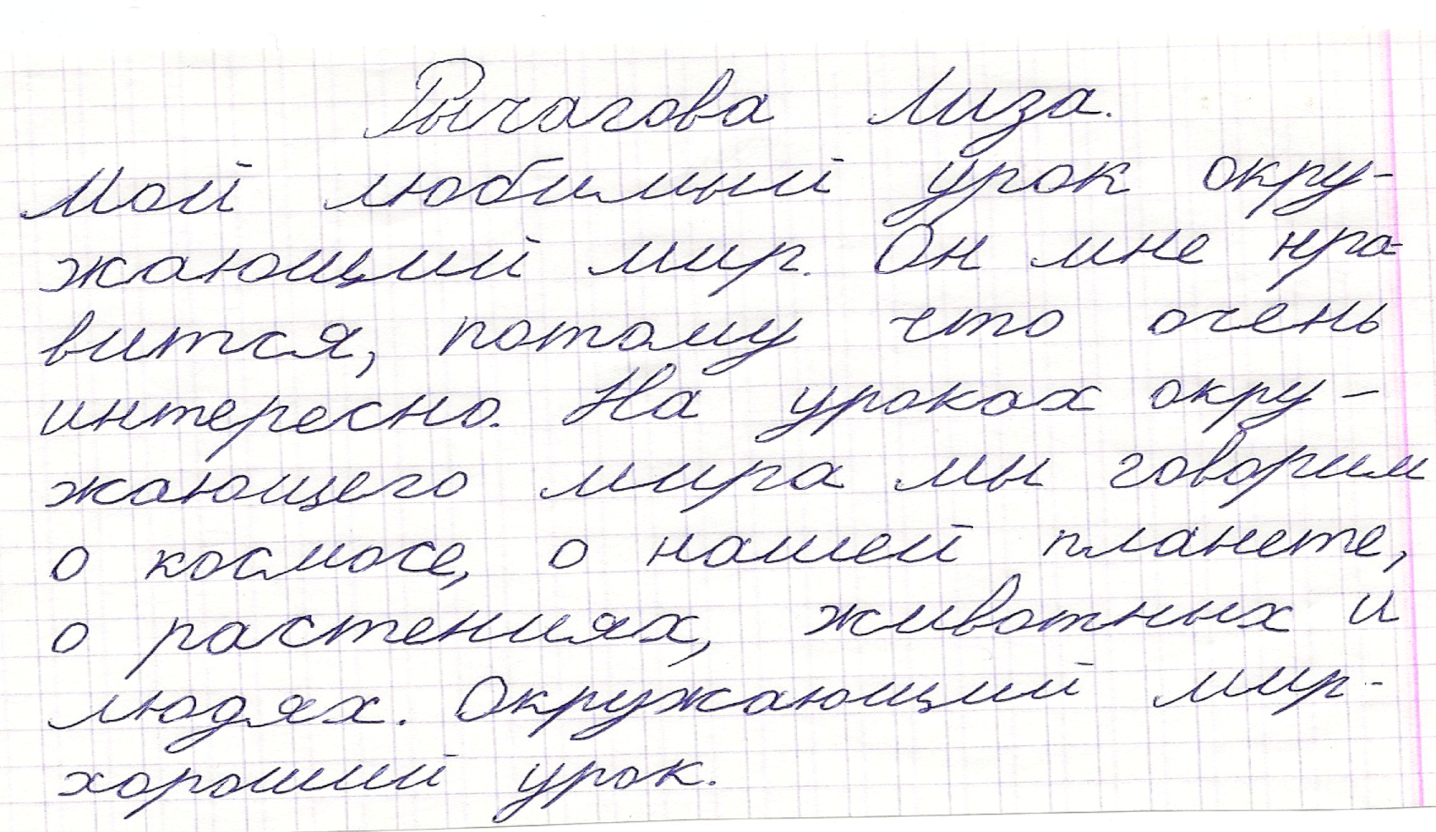 Рычагова Лиза.
Мой любимый урок окру-
жающий мир. Он мне нра-
вится, потому что очень
интересно. На уроках окру-
жающего мира мы говорим
о космосе, о нашей планете,
о растениях, животных и
людях. Окружающий мир-
хороший урок.